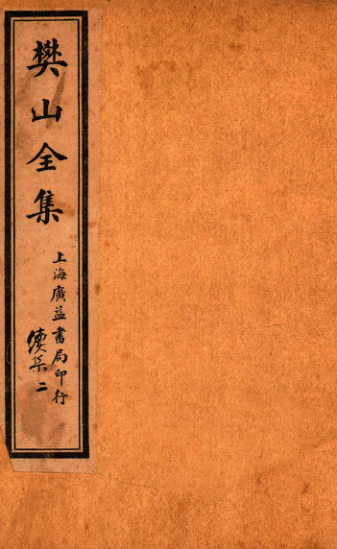 樊山全集
上海廣益書局印行
續集二